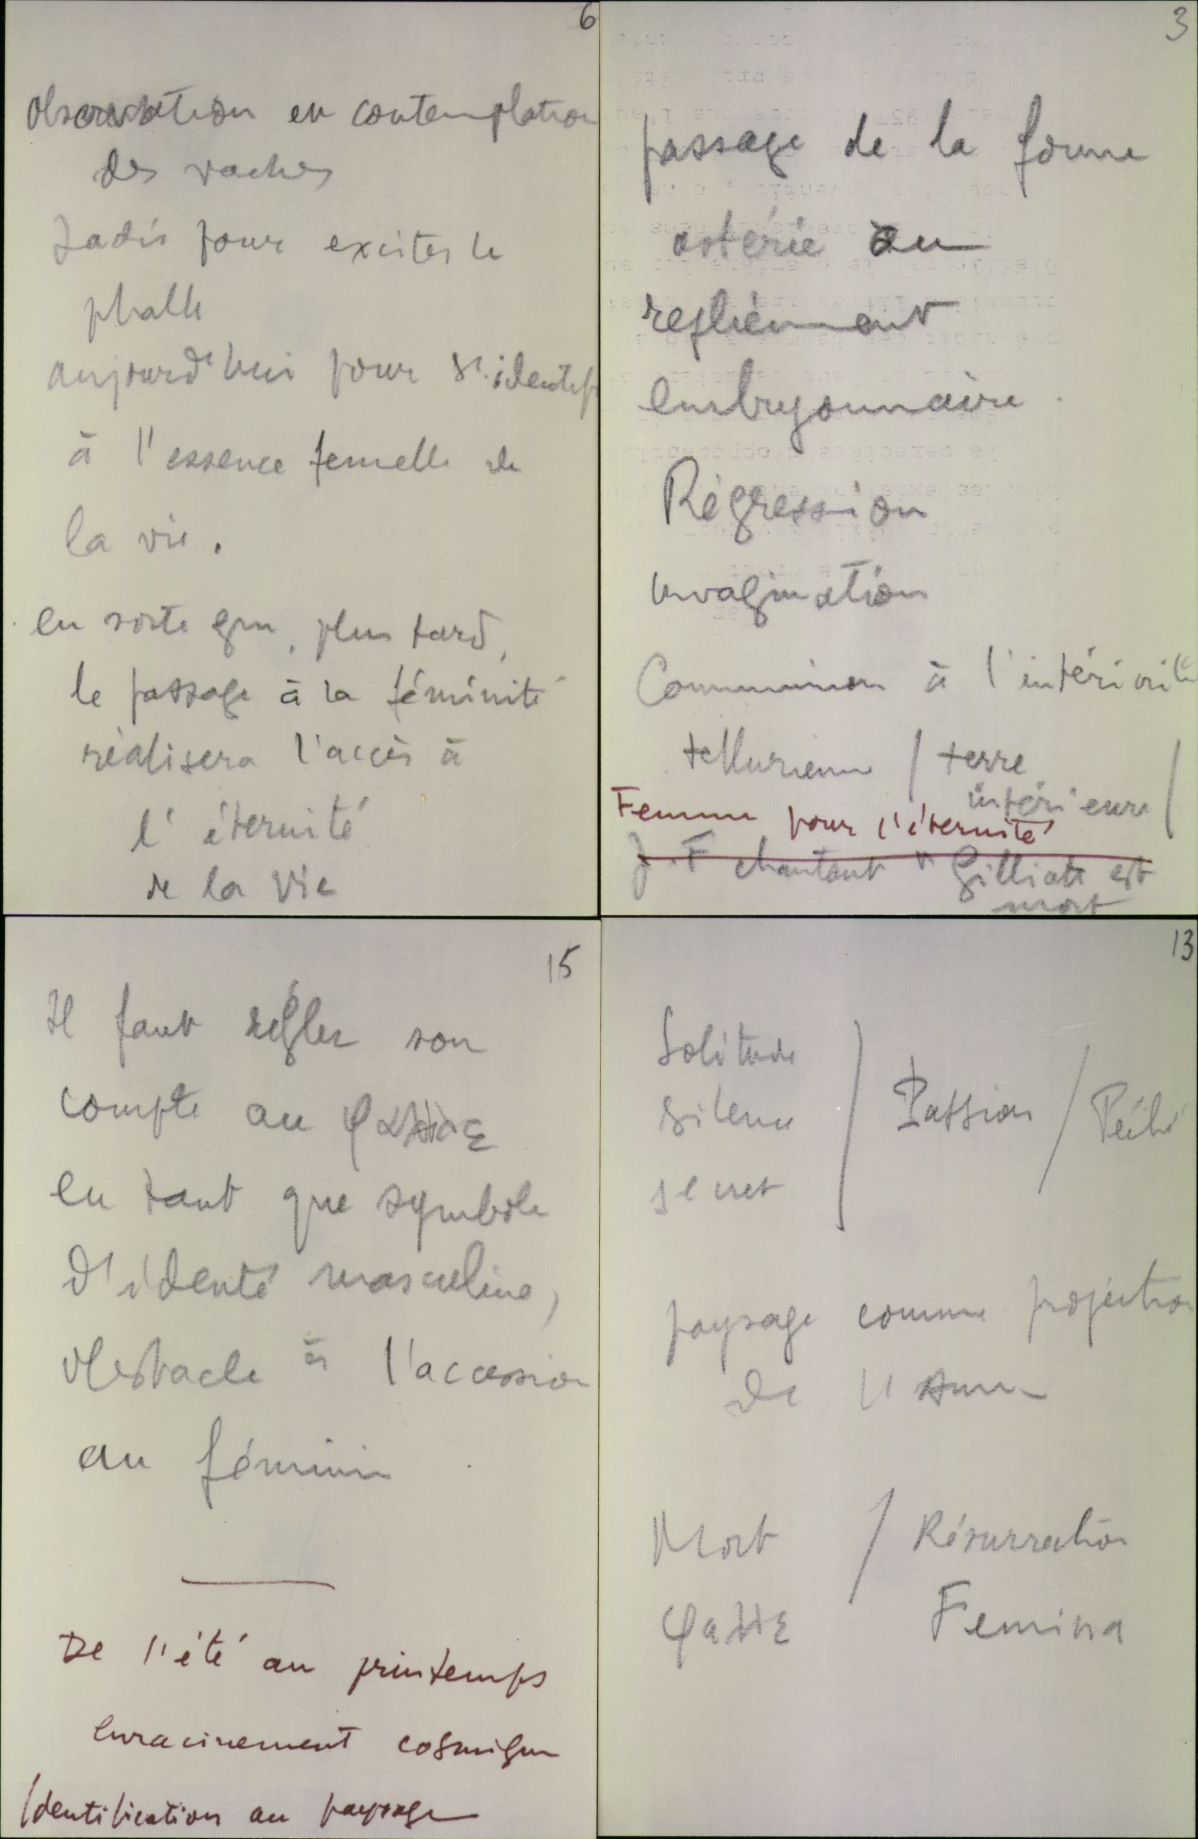 6
observation en contemplation
des vaches
Jadis pour exciter le
phalle
aujourd'hui pour s'identif
à l'essence femelle de
la vie.
en sorte que, plus tard,
le passage à la féminité
réalisera l'accès à
l'éternité
de la vie
3
passage de la forme
astérie au
repliement
embryonnaire.
Régression
invagination
Communion à l'intériorité
tellurienne / terre
intérieure /
Femme pour l'éternité
J. F chantant Gilliatt est
mort
15
Il faut régler son
compte au
en tant que symbole
d'identé masculine,
obstacle à l'accession
au féminin
De l'été au printemps
enracinement cosmique
Identification au paysage
13
Solitude
silence / Passion / Péché
secret
paysage comme projection
de l'Ame
Mort / Résurrection
Femina